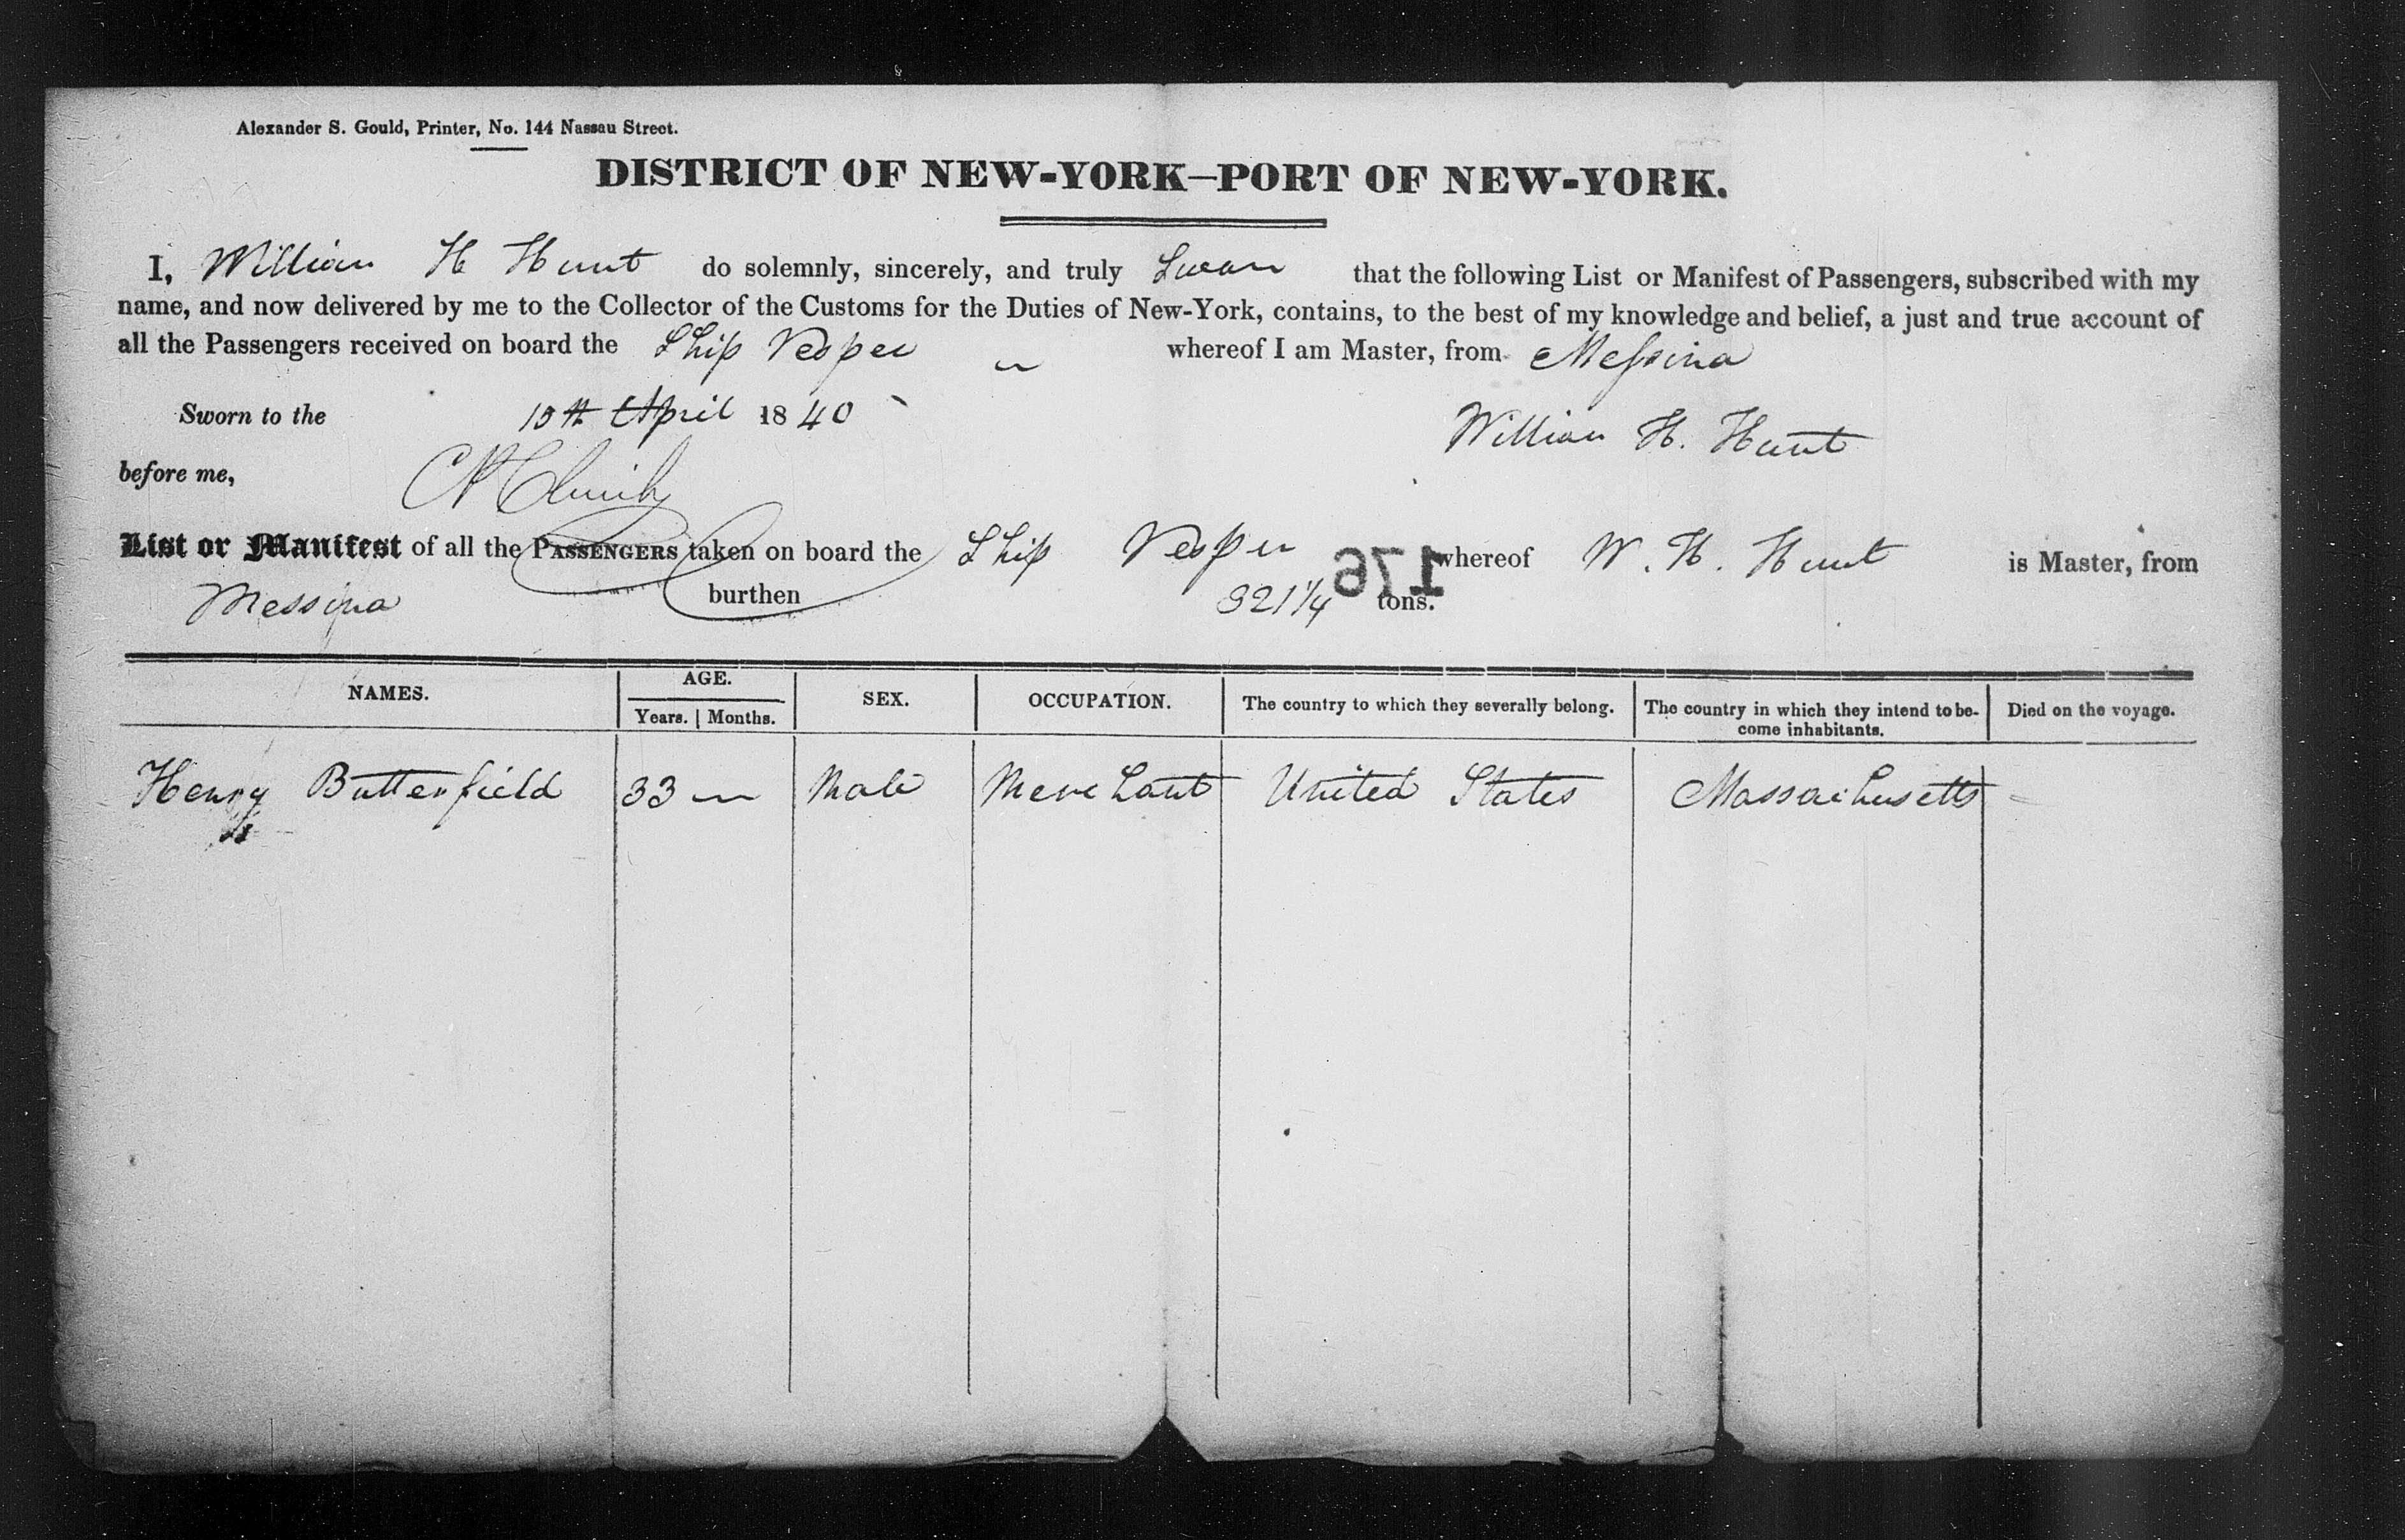 Alexander S. Gould, Printer, No. 144 Nassau Street.
DISTRICT OF NEW-YORK—PORT OF NEW-YORK.
I, William H Hunt do solemnly, sincerely, and truly Swear that the following List or Manifest of Passengers, subscribed with my
name, and now delivered by me to the Collector of the Customs for the Duties of New-York, contains, to the best of my knowledge and belief, a just and true account of
all the Passengers received on board the Ship Vesper whereof I am Master, from Messina
Sworn to the April 1840
William H. Hunt
before me,
List or Manifest of all the PASSENGERS taken on board the Ship Vesper whereof W. H. Hunt is Master, from
Messina burthen 321 1/4 tons.
176
NAMES. AGE. SEX. OCCUPATION. The country to which they severally belong. The country in which they intend to be-
come inhabitants. Died on the voyage.
Years. Months.
Henry Butterfield 33 Male Merchant United States Massachusetts